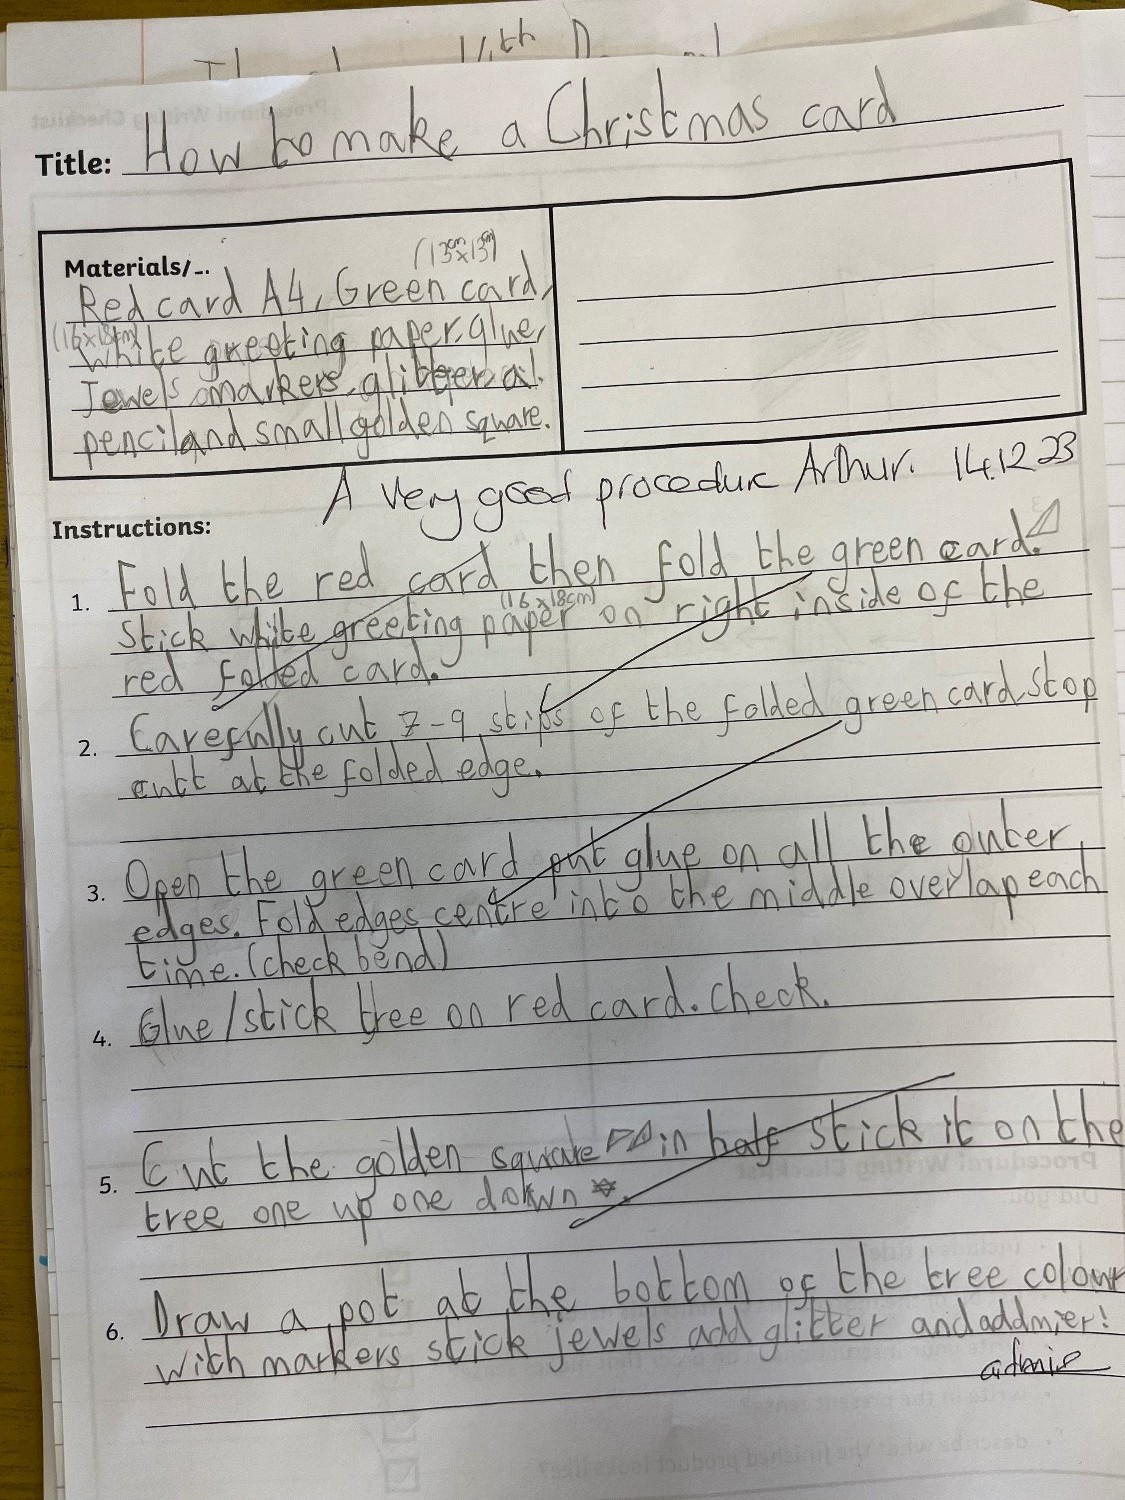 14th D
How to make a Christmas card
Title:
(13cm x 13cm)
Materials/...
Red card A4, Green card,
(16x18cm)
White greeting paper, glue,
Jewels markers, glitter,
pencil and small golden square.
A very good procedure Arthur. 14.12.23
Instructions:
1. Fold the red card then fold the green card.
(16x18cm)
Stick white greeting paper on right inside of the
red folded card.
2. Carefully cut 7-9 stips of the folded green card stop
cutt at the folded edge.
3. Open the green card put glue on all the outer
edges. Fold edges centre into the middle overlap each
time. (check bend)
4. Glue/stick tree on red card. check.
5. Cut the golden square in half stick it on the
tree one up one down.
6. Draw a pot at the bottom of the tree colour
with markers stick jewels add glitter and addmier!
admire
Procedural Writing Checklist